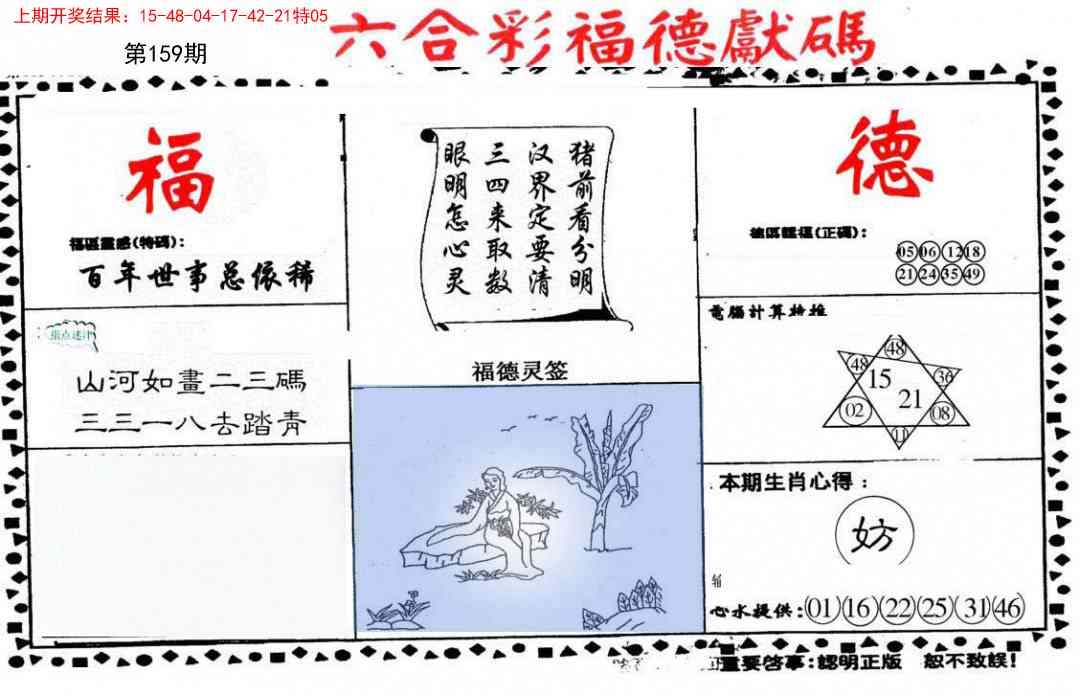 上期开奖结果：15-48-04-17-42-21特05
第159期
六合彩福德獻碼
福
福區靈感(特碼)：
百年世事总依稀
山河如畫二三碼
三三一八去踏青
猪前看分明
汉界定要清
三四来取数
眼明怎心灵
福德灵签
德
05 06 12 18
21 24 35 49
電腦計算
48
48 36
15
21
02 08
11
本期生肖心得：
妨
心水提供：01 16 22 25 31 46
重要啓事：認明正版 恕不致誤！